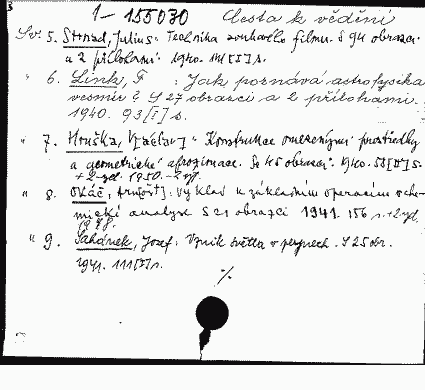 1-155030 Cesta k vědění
Sv. 5. Strnad, Julius: Technika zvukového filmu. S 94 obrazci
a 2 přílohami. 1940. 141[I] s.
" 6. Link, F : Jak poznává astrofysika
vesmír? S 27 obrazci a 2 přílohami.
1940. 93[I] s.
" 7. Hruška, V[áclav]: Konstrukce omezenými prostředky
a geometrické aproximace. Se 45 obrazci. 1940.
+ 2. vyd. 1950.
" 8. Okáč, Arnošt: Výklad k základním operacím v che-
mické analyse S 21 obrazci 1941. 156 s. + 2. vyd.
1948.
" 9. Sahánek, Josef: Vznik světla v plynech. S 25 obr.
1941. 111[I] s.
%